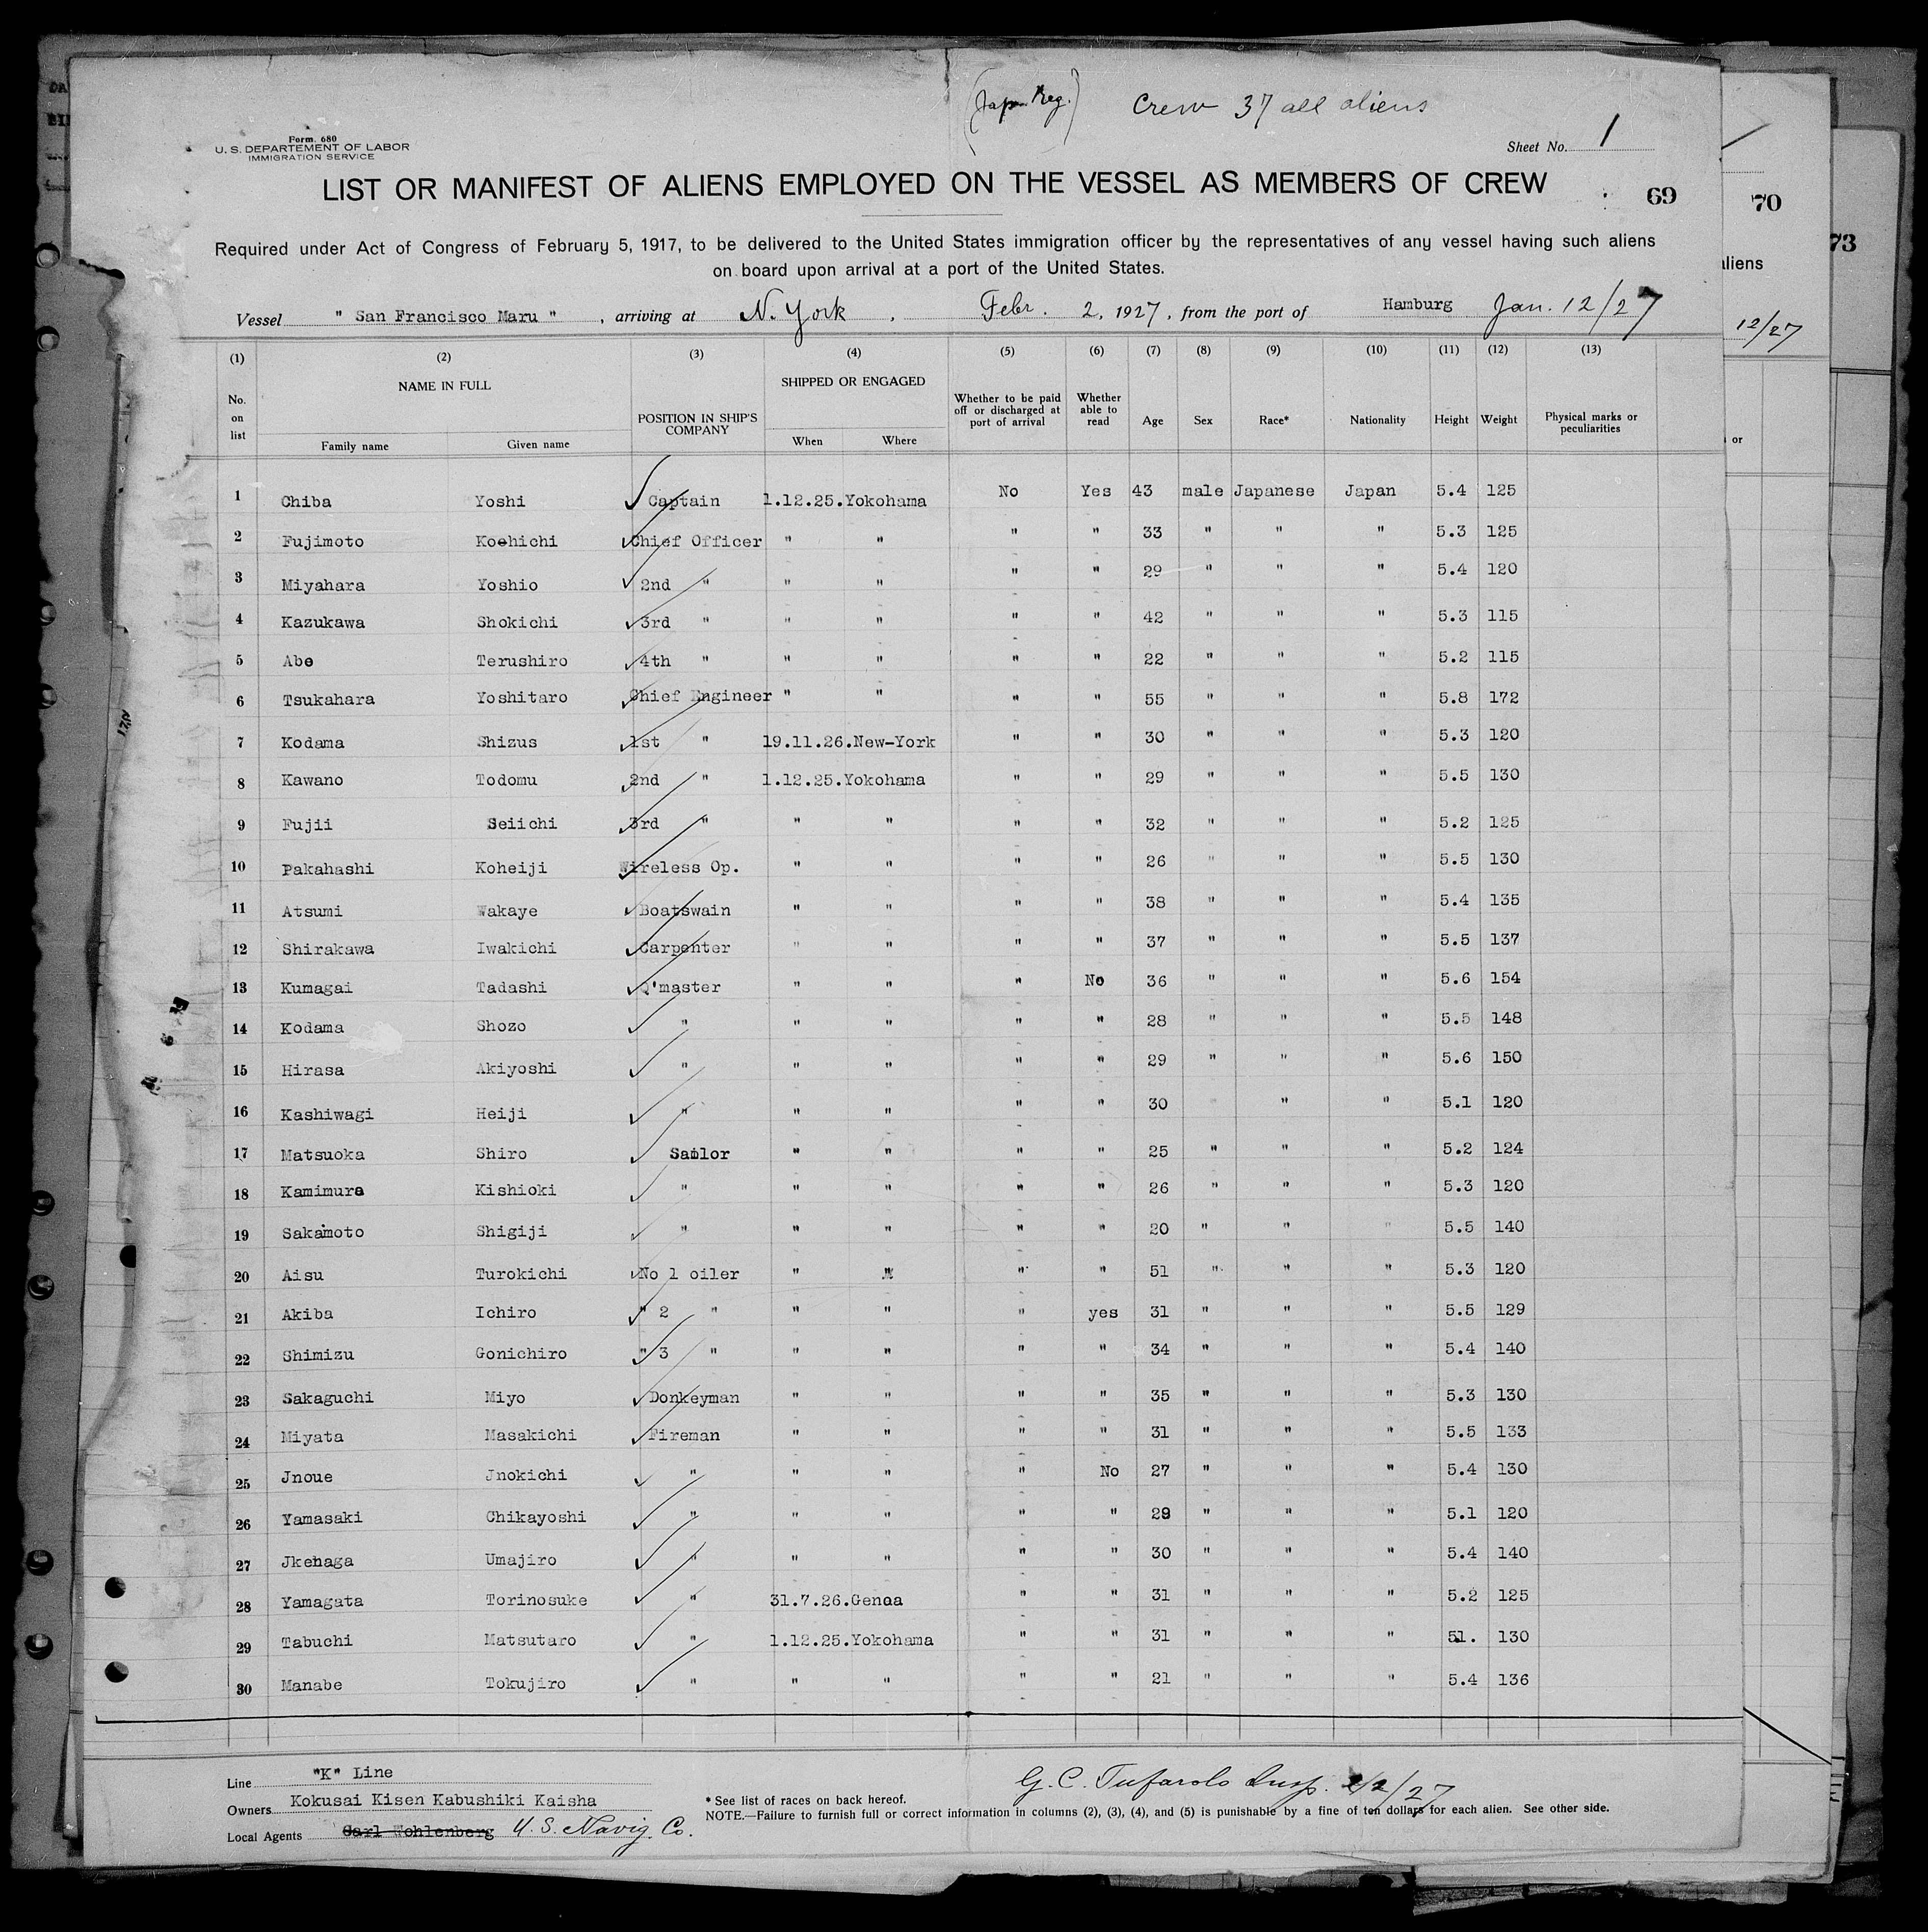 (Jap. Reg.) Crew 37 all aliens
Form 680
U. S. DEPARTEMENT OF LABOR
IMMIGRATION SERVICE
Sheet No. 1
LIST OR MANIFEST OF ALIENS EMPLOYED ON THE VESSEL AS MEMBERS OF CREW
69
70
73
Required under Act of Congress of February 5, 1917, to be delivered to the United States immigration officer by the representatives of any vessel having such aliens
on board upon arrival at a port of the United States.
aliens
Vessel " San Francisco Maru " , arriving at N. York , Febr. 2, 1927, from the port of Hamburg Jan. 12/27
12/27
(1) (2) (3) (4) (5) (6) (7) (8) (9) (10) (11) (12) (13)
No. on list NAME IN FULL Family name Given name POSITION IN SHIP'S COMPANY SHIPPED OR ENGAGED When Where Whether to be paid off or discharged at port of arrival Whether able to read Age Sex Race* Nationality Height Weight Physical marks or peculiarities
or
1 Chiba Yoshi Captain 1.12.25. Yokohama No Yes 43 male Japanese Japan 5.4 125
2 Fujimoto Koehichi Chief Officer " " " " 33 " " " 5.3 125
3 Miyahara Yoshio 2nd " " " " " 29 " " " 5.4 120
4 Kazukawa Shokichi 3rd " " " " " 42 " " " 5.3 115
5 Abe Terushiro 4th " " " " " 22 " " " 5.2 115
6 Tsukahara Yoshitaro Chief Engineer " " " " 55 " " " 5.8 172
7 Kodama Shizus 1st " 19.11.26. New-York " " 30 " " " 5.3 120
8 Kawano Todomu 2nd " 1.12.25. Yokohama " " 29 " " " 5.5 130
9 Fujii Seiichi 3rd " " " " " 32 " " " 5.2 125
10 Pakahashi Koheiji Wireless Op. " " " " 26 " " " 5.5 130
11 Atsumi Wakaye Boatswain " " " " 38 " " " 5.4 135
12 Shirakawa Iwakichi Carpenter " " " " 37 " " " 5.5 137
13 Kumagai Tadashi Q'master " " " No 36 " " " 5.6 154
14 Kodama Shozo " " " " " 28 " " " 5.5 148
15 Hirasa Akiyoshi " " " " " 29 " " " 5.6 150
16 Kashiwagi Heiji " " " " " 30 " " 5.1 120
17 Matsuoka Shiro Sailor " " " " 25 " " " 5.2 124
18 Kamimura Kishioki " " " " " 26 " " " 5.3 120
19 Sakamoto Shigiji " " " " " 20 " " " 5.5 140
20 Aisu Turokichi No 1 oiler " " " " 51 " " " 5.3 120
21 Akiba Ichiro " 2 " " " " yes 31 " " " 5.5 129
22 Shimizu Gonichiro " 3 " " " " " 34 " " " 5.4 140
23 Sakaguchi Miyo Donkeyman " " " " 35 " " " 5.3 130
24 Miyata Masakichi Fireman " " " " 31 " " " 5.5 133
25 Jnoue Jnokichi " " " " No 27 " " " 5.4 130
26 Yamasaki Chikayoshi " " " " " 29 " " " 5.1 120
27 Jkenaga Umajiro " " " " " 30 " " " 5.4 140
28 Yamagata Torinosuke " 31.7.26. Genoa " " 31 " " " 5.2 125
29 Tabuchi Matsutaro " 1.12.25. Yokohama " " 31 " " " 51. 130
30 Manabe Tokujiro " " " " " 21 " " " 5.4 136
Line "K" Line
Owners Kokusai Kisen Kabushiki Kaisha
Local Agents Carl Wohlenberg U. S. Navig. Co.
G. C. Tufarolo Insp. 2/2/27
* See list of races on back hereof.
NOTE.—Failure to furnish full or correct information in columns (2), (3), (4), and (5) is punishable by a fine of ten dollars for each alien. See other side.